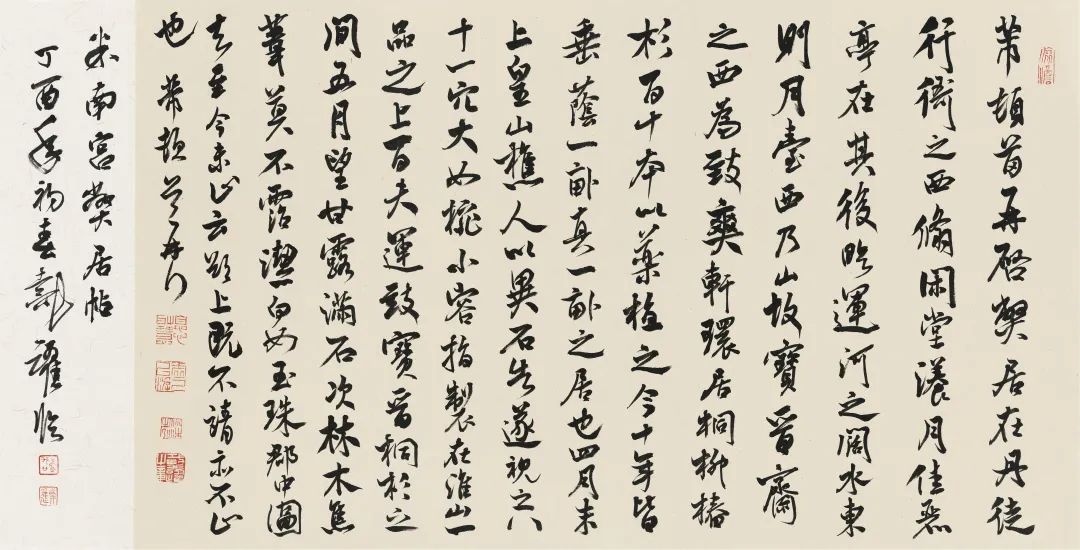 芾頓首再啓弊居在丹徒
行衙之西翛閑堂漾月佳麗
亭在其後臨運河之闊水東
則月臺西乃山故寶晉齋
之西為致爽軒環居桐柳椿
杉百十本以藥植之今十年皆
垂蔭一畝真一畝之居也四月末
上皇山樵人以異石告遂視之八
十一穴大如椀小容指製在淮山一
品之上百夫運致寶晉桐杉之
間五月望甘露滿石次林木焦
葦莫不霑潔白如玉珠郡中圖
去至今未止云欲上既不請亦不止
也芾頓首再拜
米南宮弊居帖
丁酉年初春臨